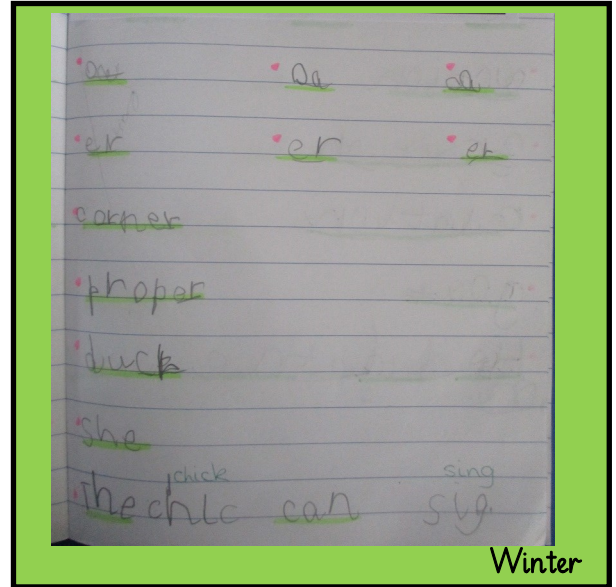 oa oa oa
er er er
corner
proper
duck
she
chick sing
The chic can sig.
Winter